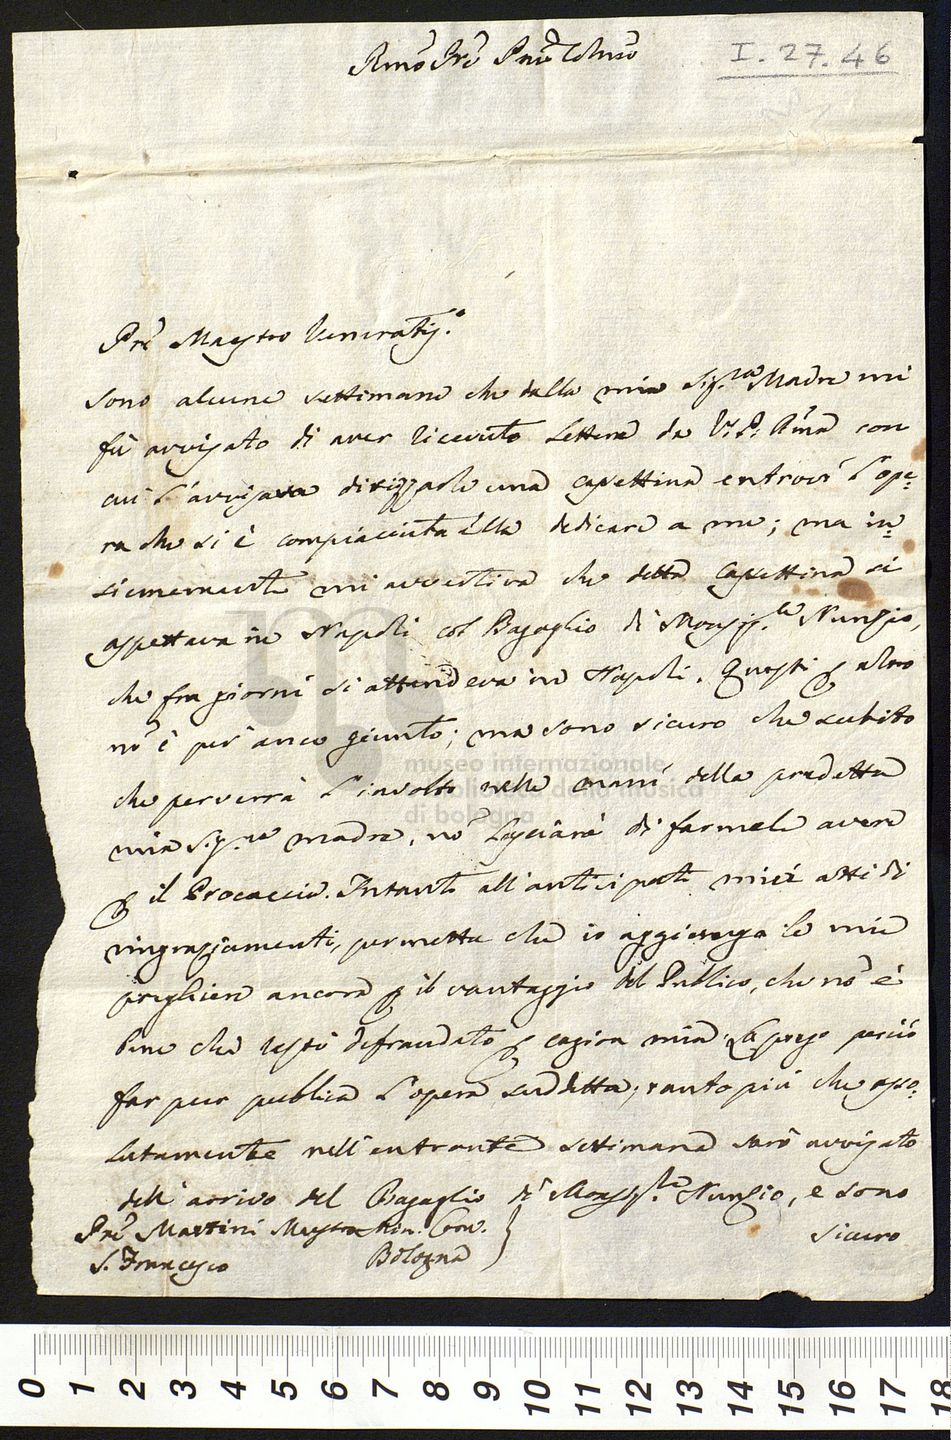 I. 27. 46
Rmo Pre Pne Colmo
Pre Maestro Veneratiss.o
Sono alcune settimane che dalla mia Sig.ra Madre mi
fù avvisato di aver ricevuto Lettera da V. P. Rma con
cui l'avvisava dirizzarle una cassettina entrovi l'ope=
ra che si è compiaciuta Ella dedicare a me; ma in=
siememente mi avvertiva che detta Cassettina si
aspettava in Napoli col Bagaglio di Monsig.le Nunzio,
che fra giorni si attendeva in Napoli. Questi p altro
nò è per anco giunto; ma sono sicuro che subito
che perverrà l'involto nelle mani della predetta
mia Sig.ra madre, nò lascierà di farmele avere
p il Procaccio. Intanto all'anticipati miei atti di
ringraziamenti, permetta che io aggiunga le mie
preghiere ancora p il vantaggio del Publico, che nò è
bene che resti defraudato p cagion mia. La prego perciò
far pur publica l'opera suddetta; tanto più che asso=
lutamente nell'entrante settimana sarò avvisato
dell'arrivo del Bagaglio di Monsig.le Nunzio, e sono
sicuro
Pre Martini Maestro Min. Conv.
S. Francesco Bologna
museo internazionale
e biblioteca della musica
di bologna
0 1 2 3 4 5 6 7 8 9 10 11 12 13 14 15 16 17 18